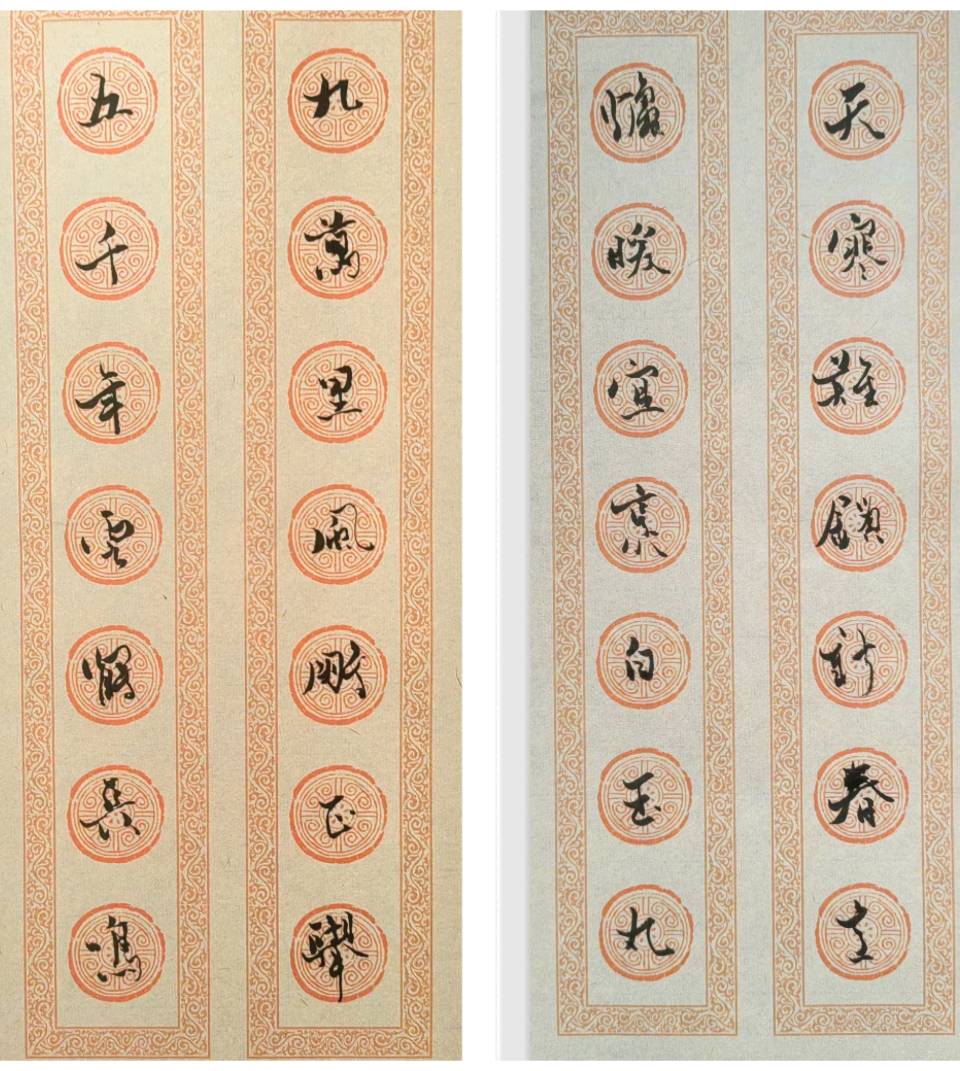 九萬里風鵬正舉
五千年雲鶴鳴
天寒難鎖新春
爐暖宜烹白玉丸